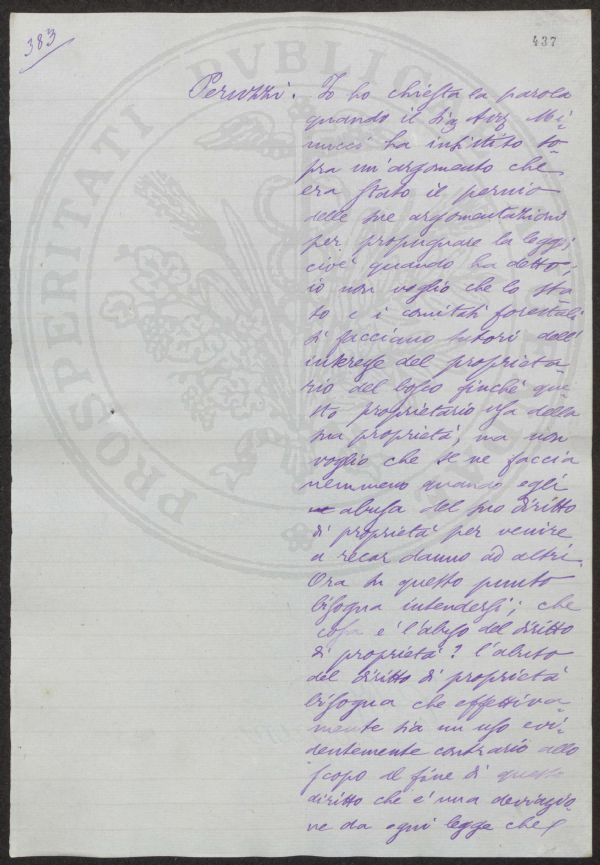 383
437
PROSPERITATI PVBLICAE
Peruzzi. Io ho chiesta la parola
quando il Sig Avv Mi=
nucci ha insistito so=
pra un'argomento che
era stato il pernio
delle sue argomentazioni
per propugnare la legge;
cioè quando ha detto;
io non voglio che lo sta=
to e i comitati forestali
si facciano tutori dell'
interesse del proprieta=
rio del bosco finchè que=
sto proprietario usa della
sua proprietà, ma non
voglio che se ne faccia
nemmeno quando egli
abusa del suo diritto
di proprietà per venire
a recar danno ad altri.
Ora su questo punto
bisogna intendersi; che
cosa è l'abuso del diritto
di proprietà? l'abuso
del diritto di proprietà
bisogna che effettiva=
mente sia un uso evi=
dentemente contrario allo
scopo al fine di questo
diritto che è una deviazio=
ne da ogni legge che